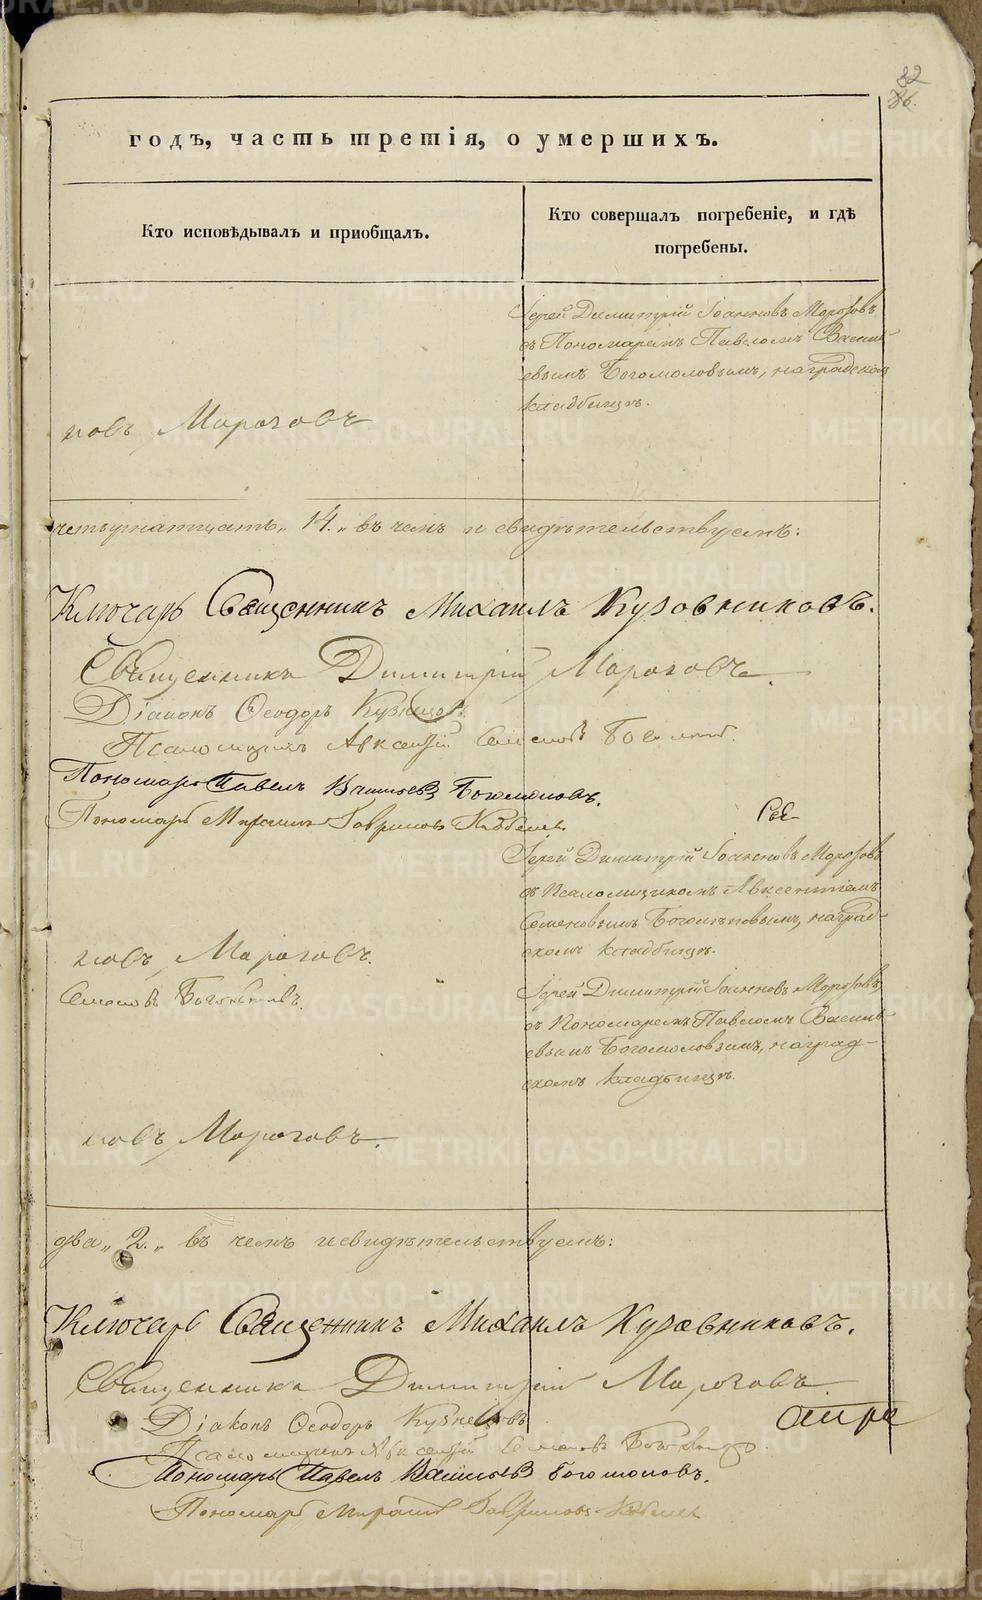 82
86.
годъ, часть третія, о умершихъ.
Кто исповѣдывалъ и пріобщалъ.
Кто совершалъ погребеніе, и гдѣ
погребены.
Іерей Димитрій Іоанновъ Морозовъ
съ Пономаремъ Павломъ Василь-
евымъ Богомоловымъ, на градскомъ
кладбищѣ.
новъ Морозовъ
четырнатцать „14.„ въ чемъ и свидѣтельствуемъ:
Ключарь Священникъ Михаилъ Кузовниковъ.
Священникъ Димитрій Морозовъ.
Діаконъ Ѳеодоръ Кузнецовъ
Псаломщикъ Авксентій Семеновъ
Пономарь Павелъ Васильевъ Богомоловъ.
Пономарь Гавриловъ
Іерей Димитрій Іоанновъ Морозовъ
съ Псаломщикомъ Авксентіемъ
Семеновымъ на град-
скомъ кладбищѣ.
новъ Морозовъ.
Семеновъ
Іерей Димитрій Іоанновъ Морозовъ,
съ Пономаремъ Павломъ Василь-
евымъ Богомоловымъ, на град-
скомъ кладбищѣ.
новъ Морозовъ.
два „2.„ въ чемъ и свидѣтельствуемъ:
Ключарь Священникъ Михаилъ Кузовниковъ.
Священникъ Димитрій Морозовъ
Діаконъ Ѳеодоръ Кузнецовъ
Псаломщикъ Авксентій Семеновъ
Пономарь Павелъ Васильевъ Богомоловъ.
Пономарь Гавриловъ
METRIKI.GASO-URAL.RU